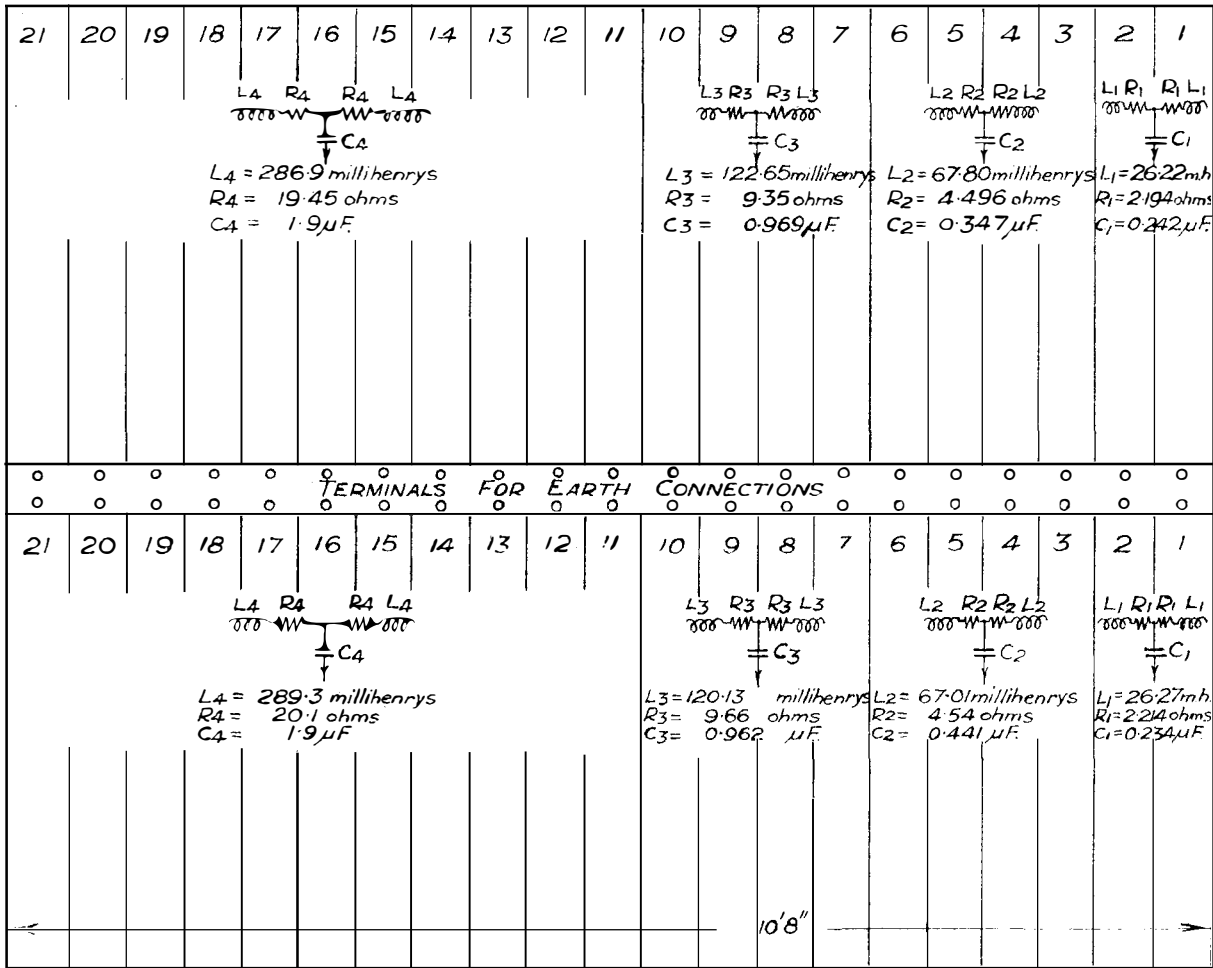 21 20 19 18 17 16 15 14 13 12 11 10 9 8 7 6 5 4 3 2 1
L4 R4 R4 L4
C4
L4 = 286.9 millihenrys
R4 = 19.45 ohms
C4 = 1.9 µF.
L3 R3 R3 L3
C3
L3 = 122.65 millihenrys
R3 = 9.35 ohms
C3 = 0.969 µF.
L2 R2 R2 L2
C2
L2 = 67.80 millihenrys
R2 = 4.496 ohms
C2 = 0.347 µF.
L1 R1 R1 L1
C1
L1 = 26.22 m.h.
R1 = 2.194 ohms
C1 = 0.242 µF.
TERMINALS FOR EARTH CONNECTIONS
21 20 19 18 17 16 15 14 13 12 11 10 9 8 7 6 5 4 3 2 1
L4 R4 R4 L4
C4
L4 = 289.3 millihenrys
R4 = 20.1 ohms
C4 = 1.9 µF.
L3 R3 R3 L3
C3
L3 = 120.13 millihenrys
R3 = 9.66 ohms
C3 = 0.962 µF.
L2 R2 R2 L2
C2
L2 = 67.01 millihenrys
R2 = 4.54 ohms
C2 = 0.441 µF.
L1 R1 R1 L1
C1
L1 = 26.27 mh.
R1 = 2.214 ohms
C1 = 0.234 µF.
10'8"